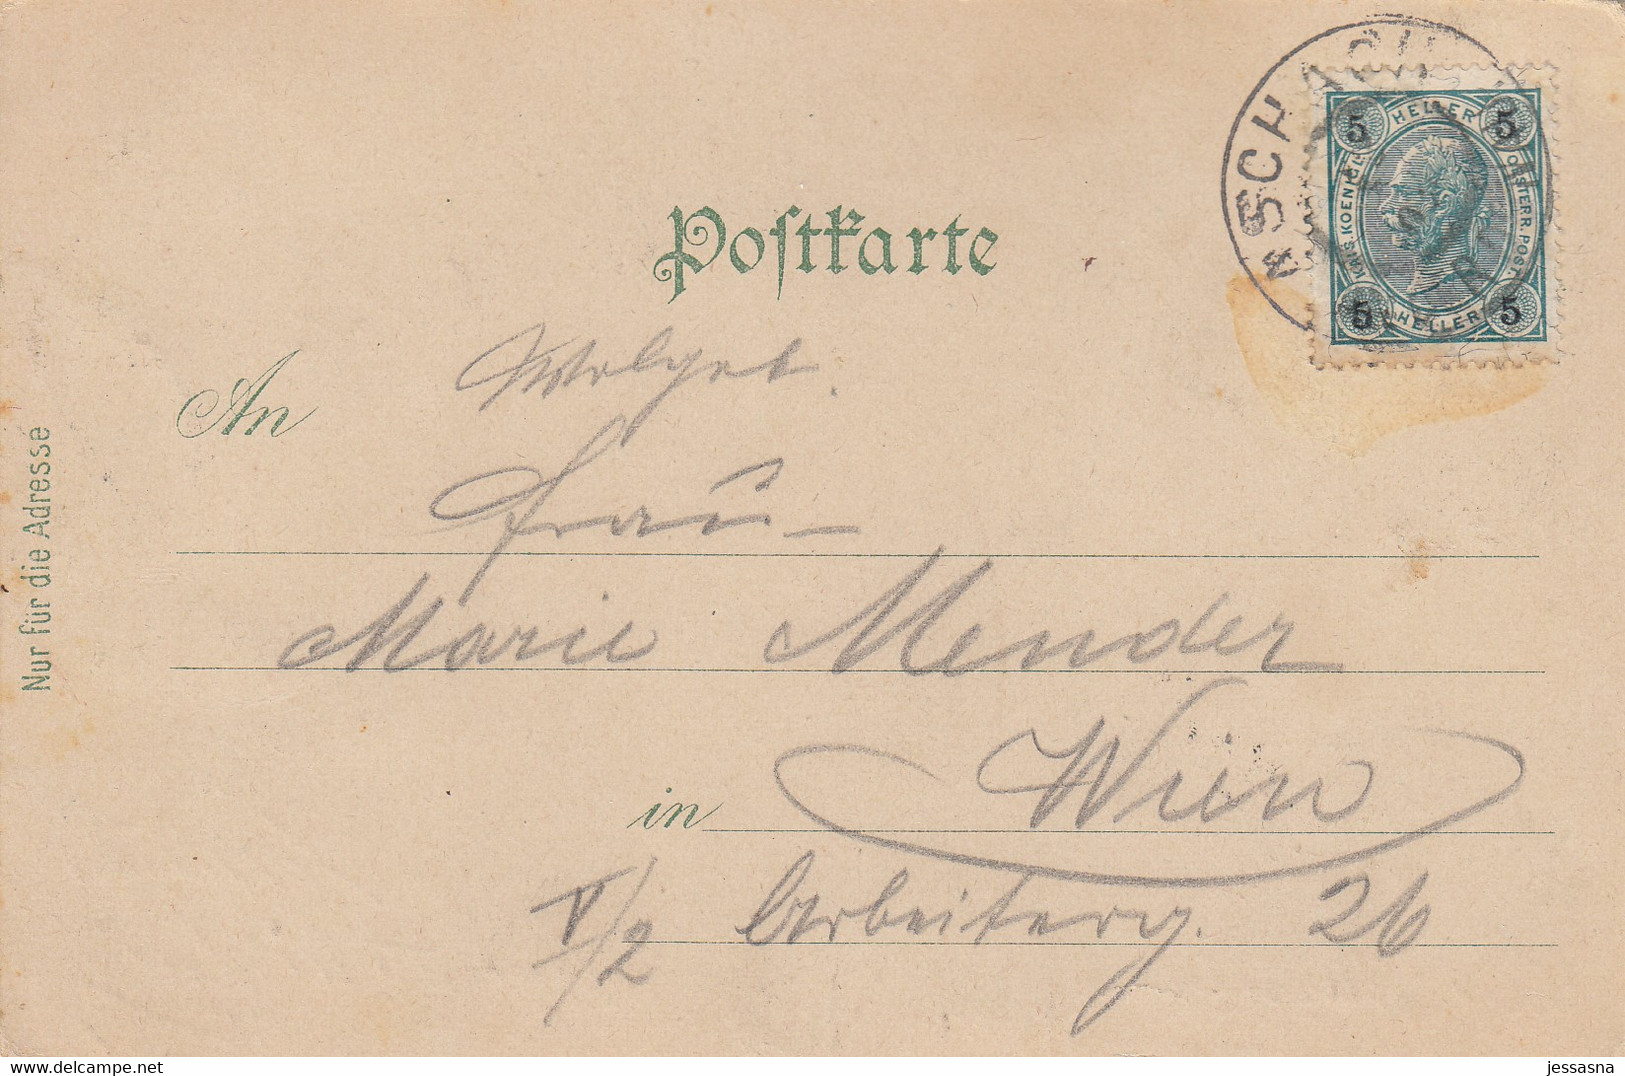 ASCHACH
HELLER
5 5
KAIS. KOENIGL. OESTERR. POST.
5 5
HELLER
Postkarte
An
Wolgeb.
Frau
Marie Mender
in Wien
V/2 Arbeiterg. 26
Nur für die Adresse
jessasna